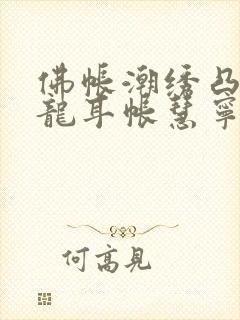 佛帳潮绣凸
龍耳帳慧寧
何高見